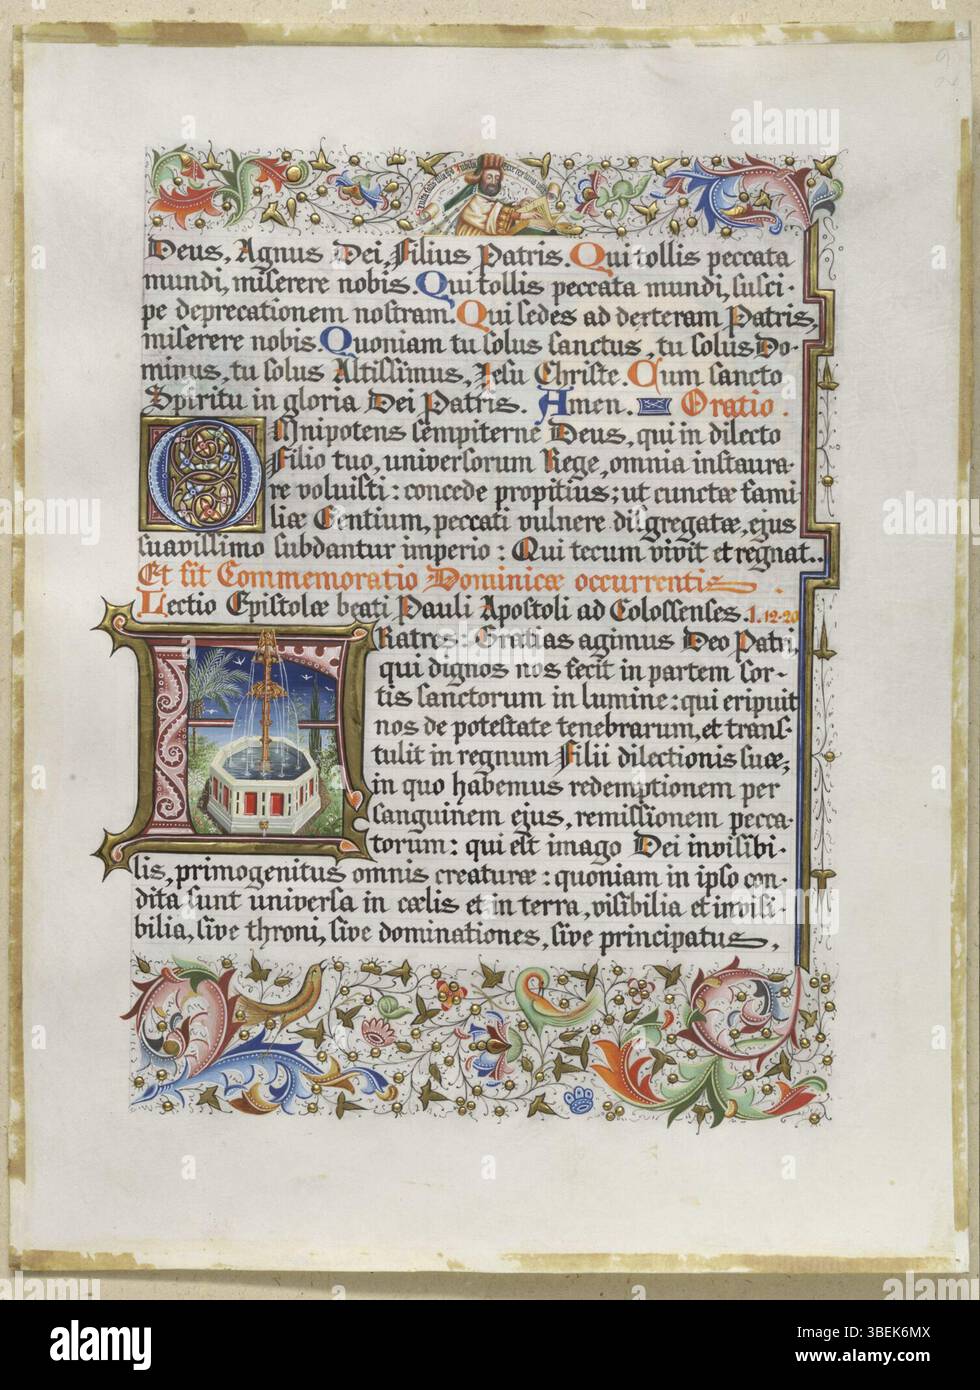 Deus, Agnus Dei, Filius Patris. Qui tollis peccata
mundi, miserere nobis. Qui tollis peccata mundi, susci-
pe deprecationem nostram. Qui sedes ad dexteram Patris,
miserere nobis. Quoniam tu solus sanctus, tu solus Do-
minus, tu solus Altissimus, Jesu Christe. Cum sancto
Spiritu in gloria Dei Patris. Amen. Oratio.
Omnipotens sempiterne Deus, qui in dilecto
Filio tuo, universorum Rege, omnia instaura-
re voluisti: concede propitius; ut cunctæ fami-
liæ Gentium, peccati vulnere disgregatæ, ejus
suavissimo subdantur imperio: Qui tecum vivit et regnat..
Et fit Commemoratio Dominicæ occurrentis.
Lectio Epistolæ beati Pauli Apostoli ad Colossenses. 1. 12-20
FRatres: Gratias agimus Deo Patri,
qui dignos nos fecit in partem sor-
tis sanctorum in lumine: qui eripuit
nos de potestate tenebrarum, et trans-
tulit in regnum Filii dilectionis suæ;
in quo habemus redemptionem per
sanguinem ejus, remissionem pecca-
torum: qui est imago Dei invisibi-
lis, primogenitus omnis creaturæ: quoniam in ipso con-
dita sunt universa in cœlis et in terra, visibilia et invisi-
bilia, sive throni, sive dominationes, sive principatus,
alamy
Image ID: 3BEK6MX
www.alamy.com